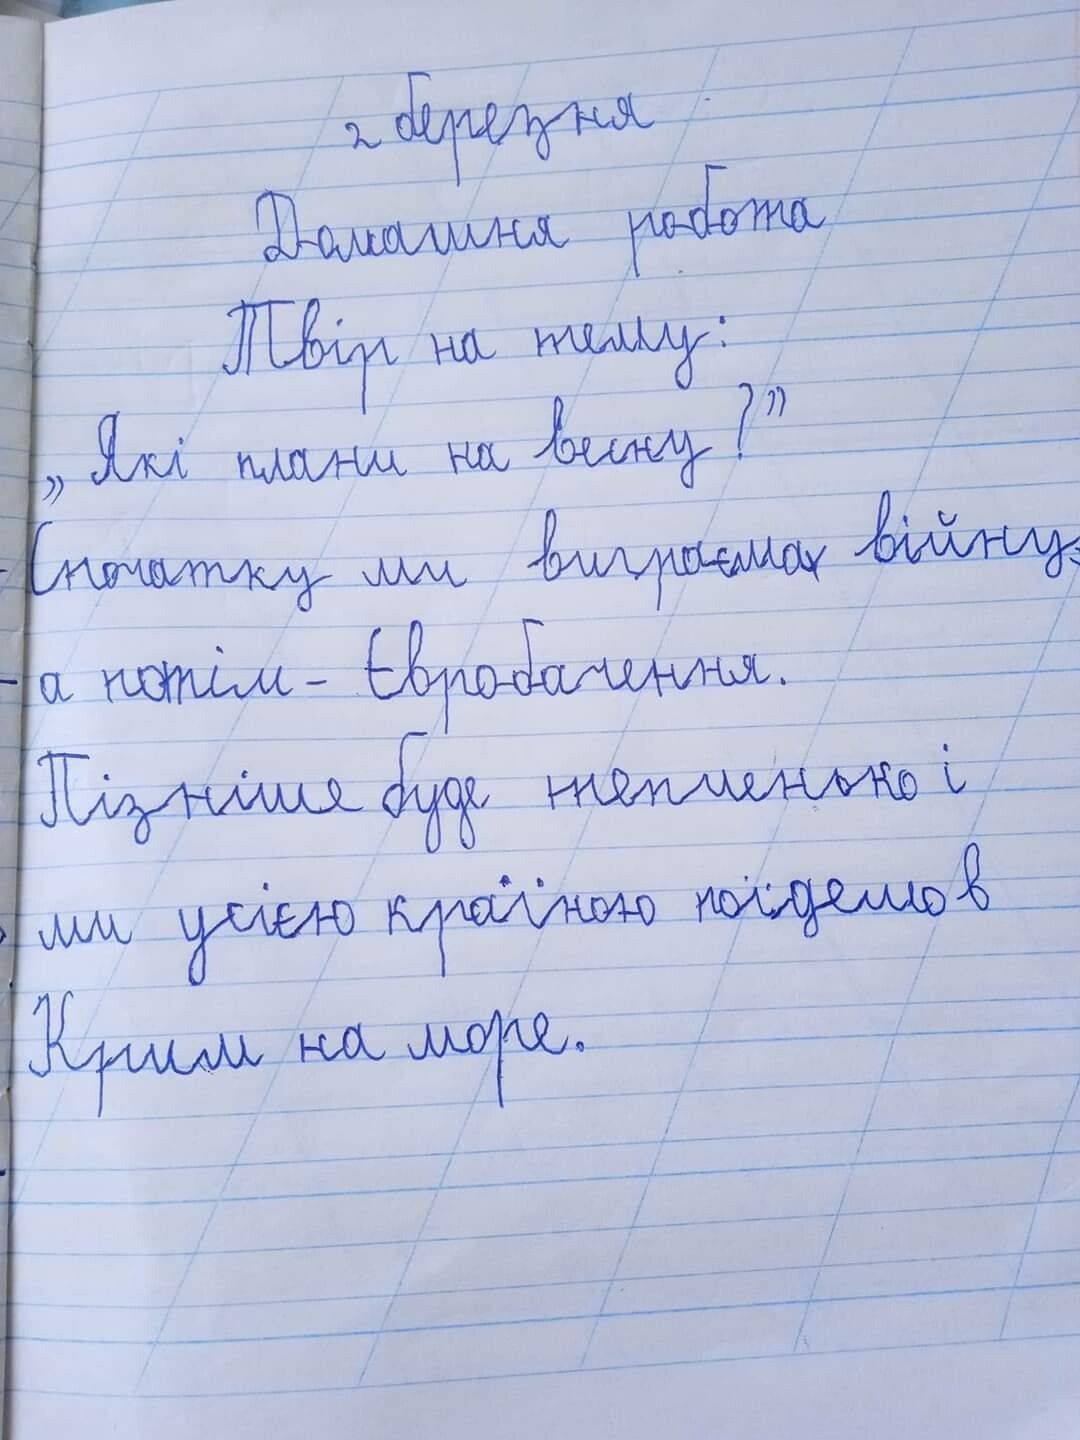 2 березня
Домашня робота
Твір на тему:
„Які плани на весну?”
Спочатку ми виграєма війну,
а потім - Євробачення.
Пізніше буде тепленько і
ми усією країною поїдемо в
Крим на море.